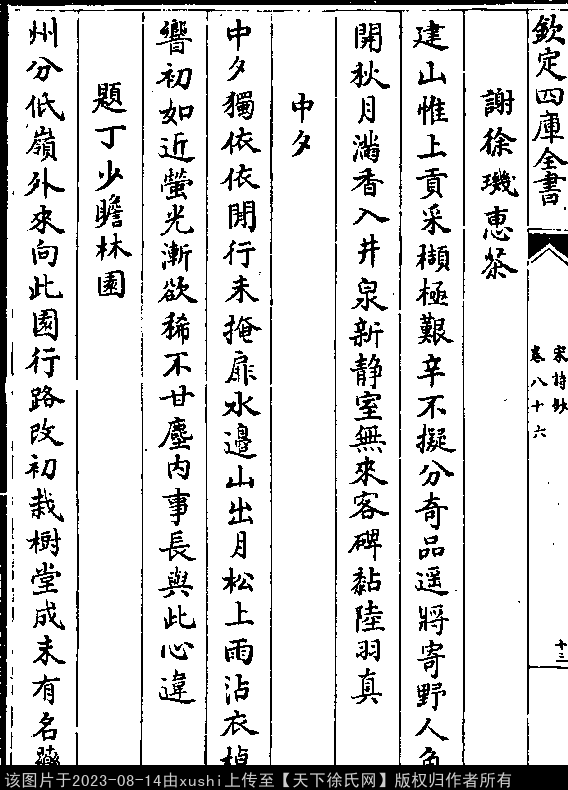 欽定四庫全書
宋詩鈔
卷八十六
十三
謝徐璣惠茶
建山惟上貢采擷極艱辛不擬分奇品遥將寄野人角
開秋月滿香入井泉新静室無來客碑黏陸羽真
中夕
中夕獨依依閒行未掩扉水邊山出月松上雨沾衣
響初如近螢光漸欲稀不甘塵内事長與此心違
題丁少瞻林園
州分低嶺外來向此園行路改初栽樹堂成未有名
该图片于2023-08-14由xushi上传至【天下徐氏网】版权归作者所有